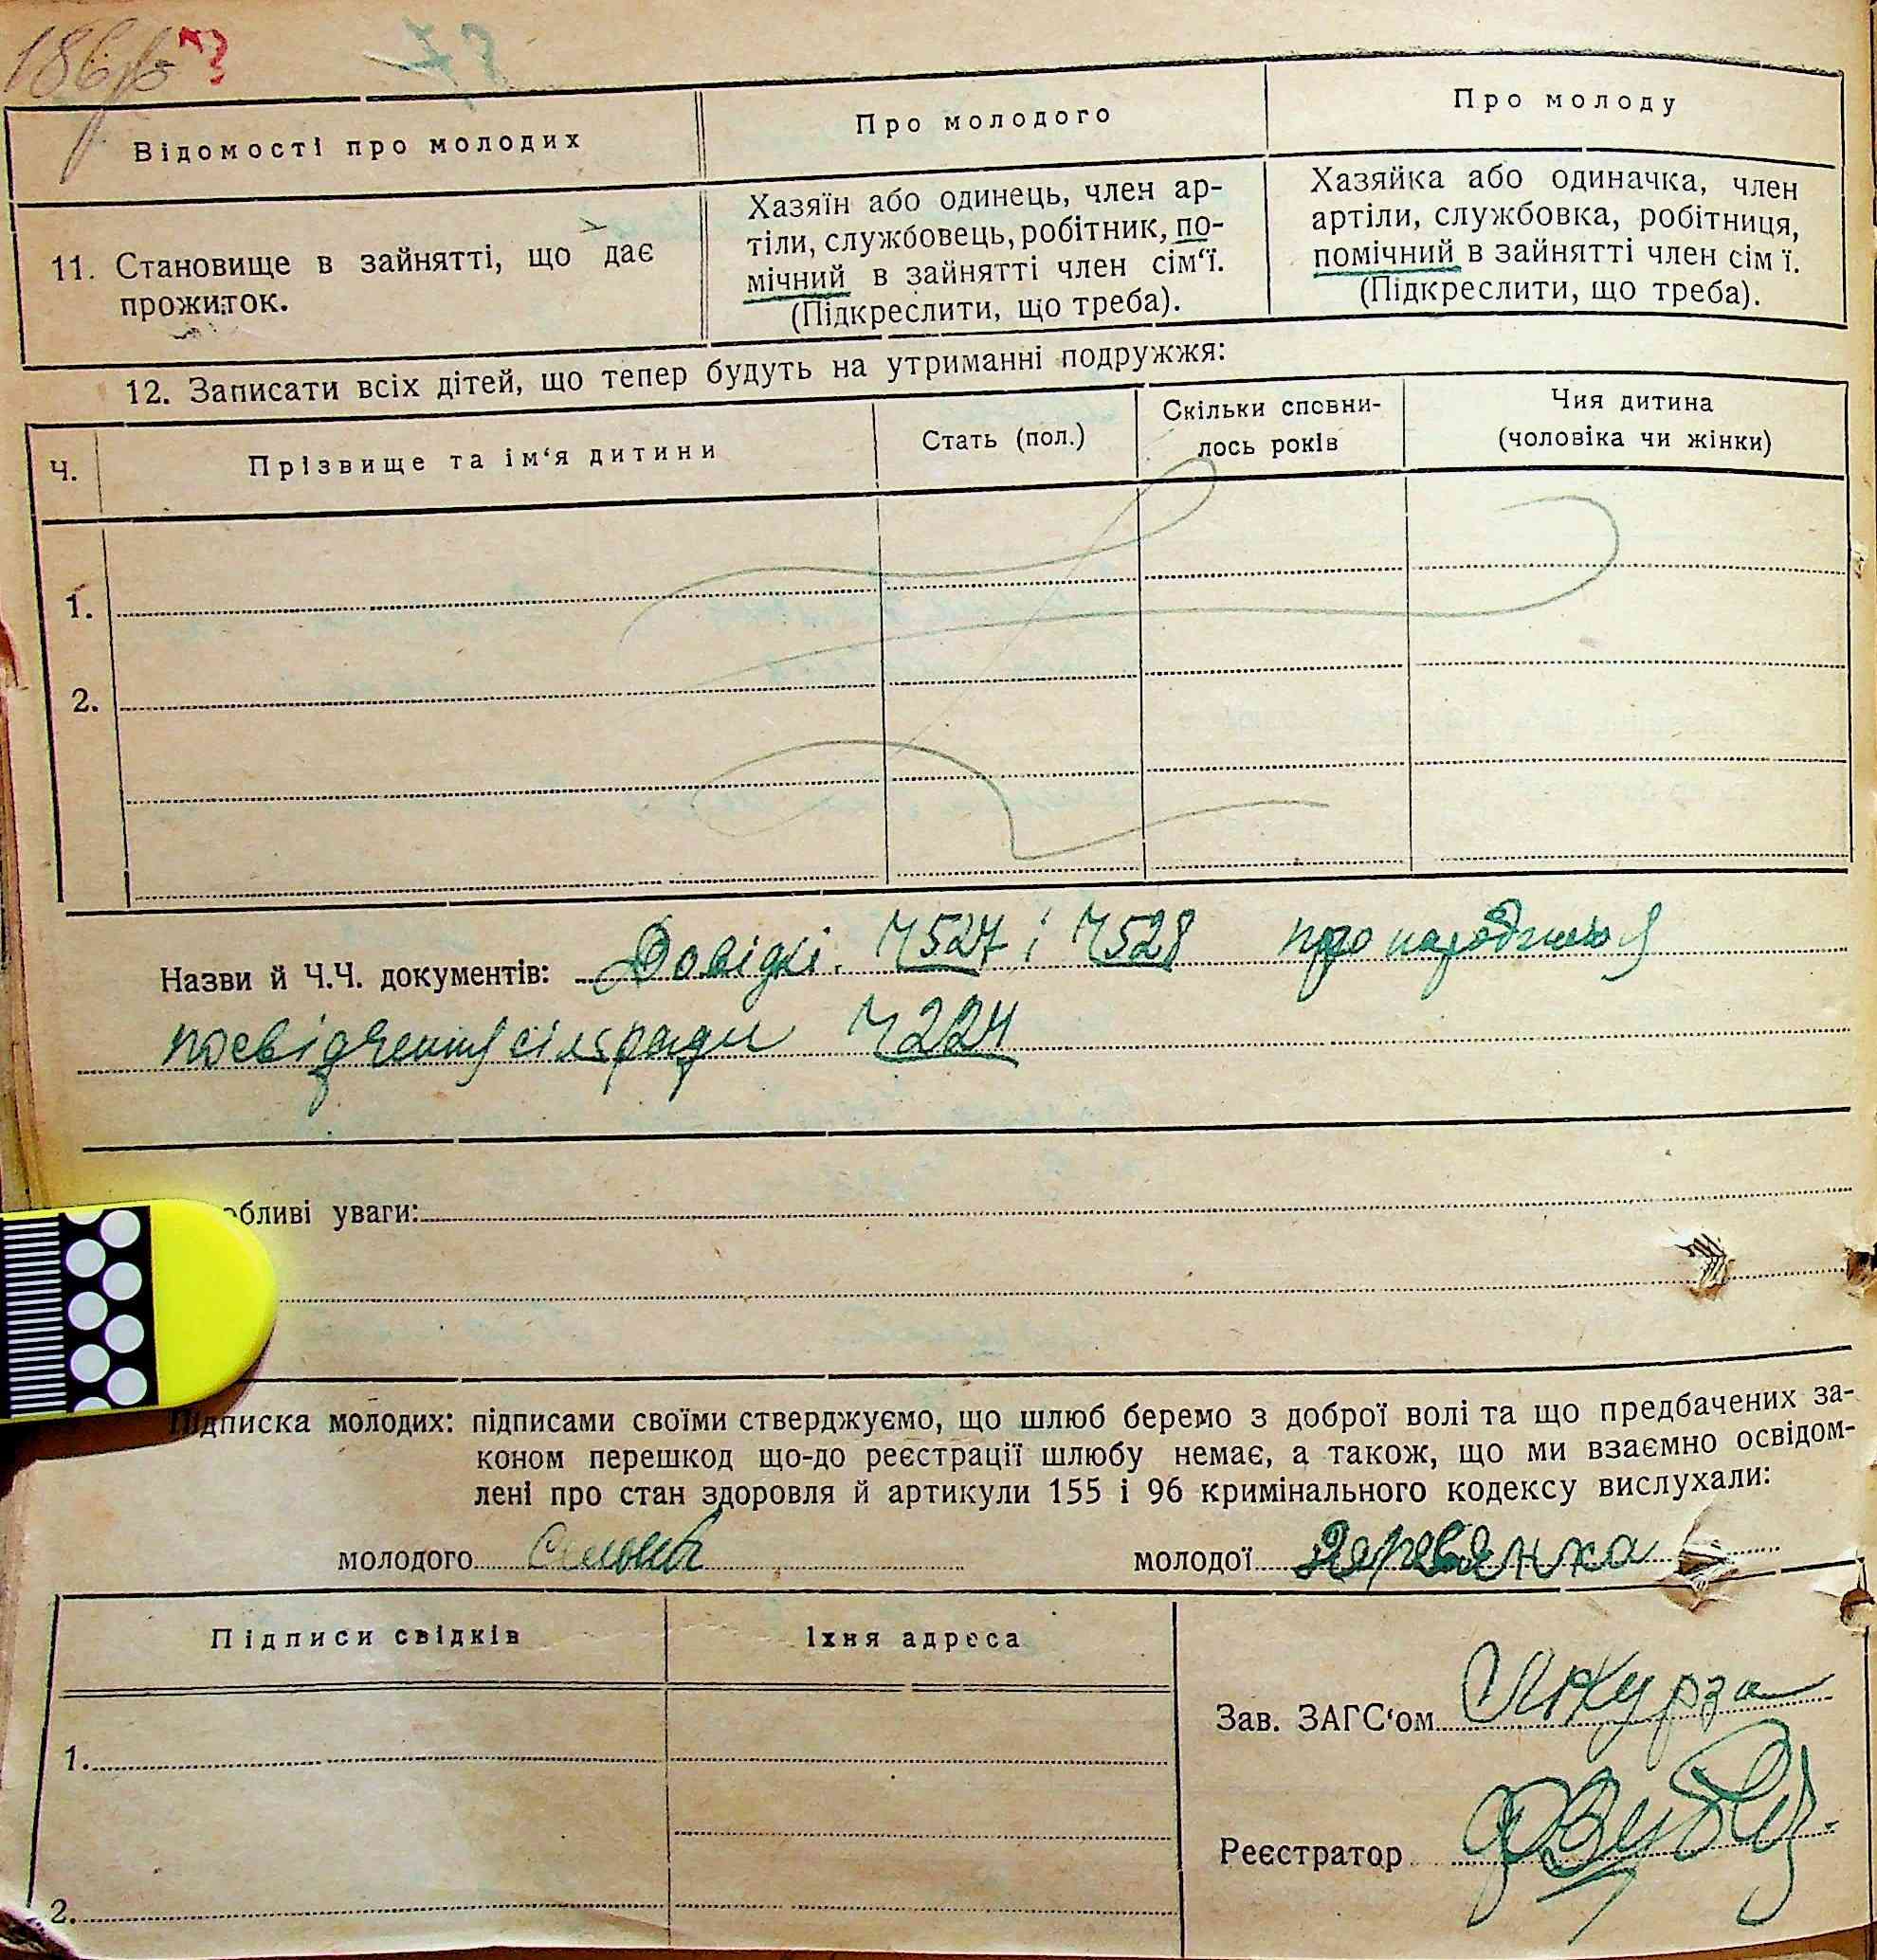 Відомості про молодих
Про молодого
Про молоду
11. Становище в зайнятті, що дає
прожиток.
Хазяїн або одинець, член ар-
тіли, службовець, робітник, по-
мічний в зайнятті член сім‘ї.
(Підкреслити, що треба).
Хазяйка або одиначка, член
артіли, службовка, робітниця,
помічний в зайнятті член сім ї.
(Підкреслити, що треба).
12. Записати всіх дітей, що тепер будуть на утриманні подружжя:
Ч.
Прізвище та ім‘я дитини
Стать (пол.)
Скільки сповни-
лось років
Чия дитина
(чоловіка чи жінки)
1.
2.
Назви й Ч.Ч. документів: Довідкі Ч527 і Ч528 про народження
посвідчення сільради Ч224
обливі уваги:
Підписка молодих: підписами своїми стверджуємо, що шлюб беремо з доброї волі та що предбачених за-
коном перешкод що-до реєстрації шлюбу немає, а також, що ми взаємно освідом-
лені про стан здоровля й артикули 155 і 96 кримінального кодексу вислухали:
молодого
молодої Деревянка
Підписи свідків
Їхня адреса
Зав. ЗАГС‘ом
1.
Реєстратор
2.